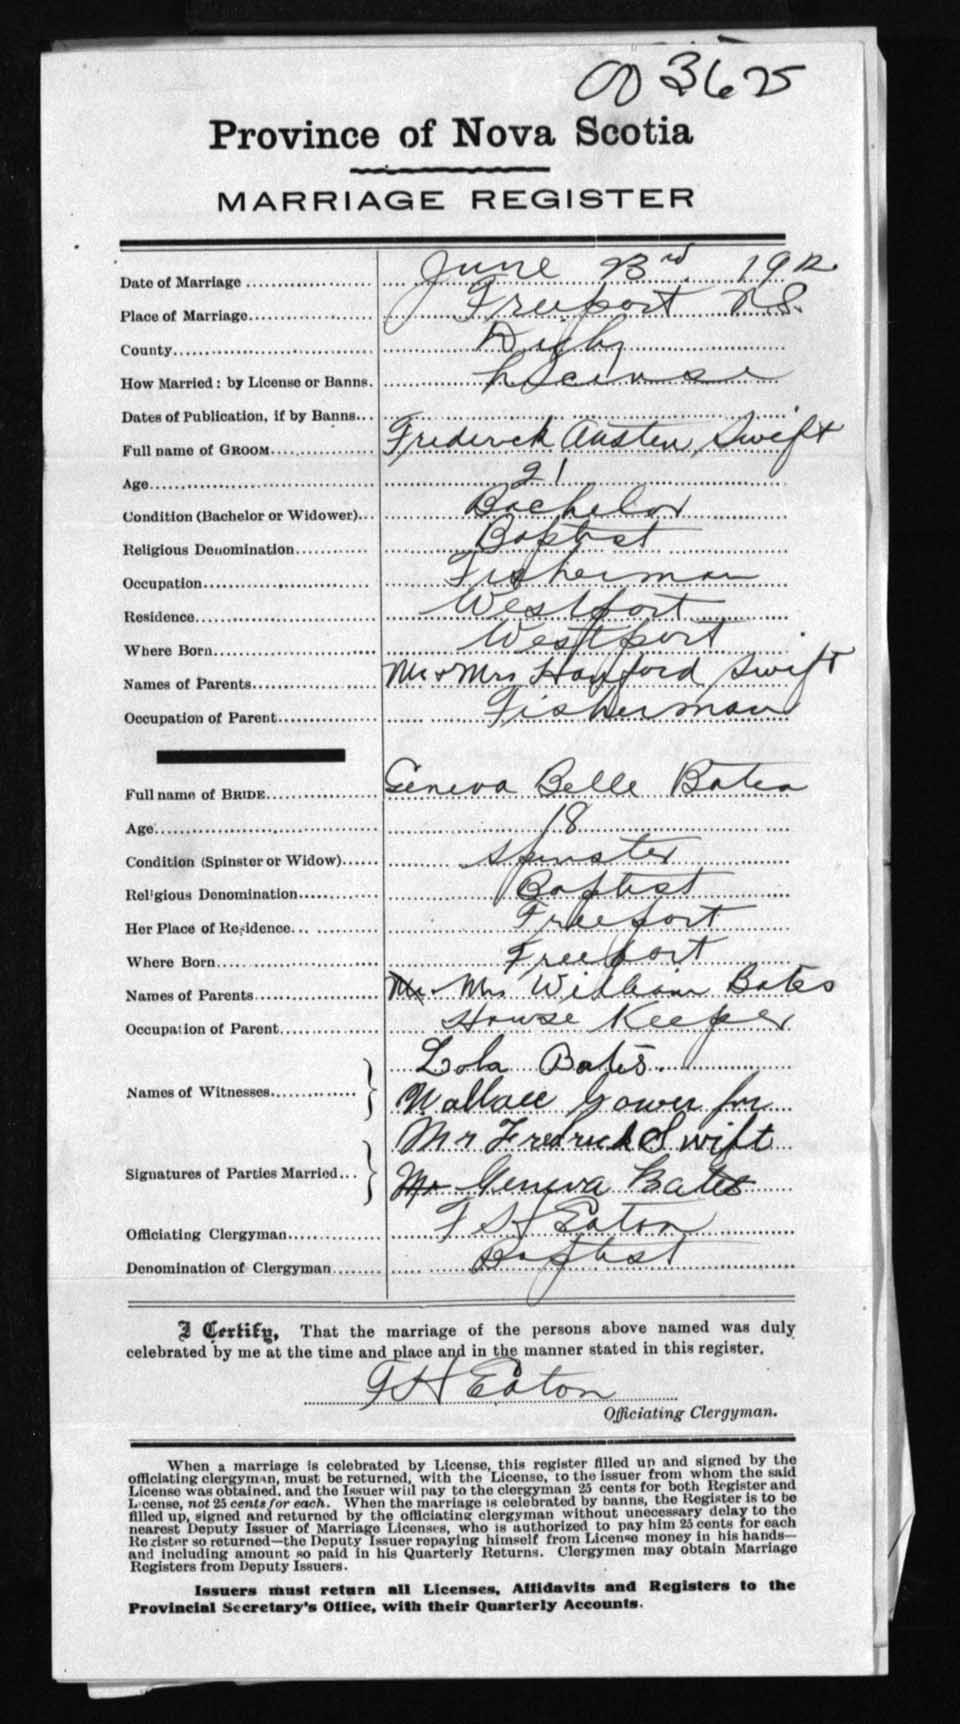 003625
Province of Nova Scotia
MARRIAGE REGISTER
Date of Marriage June 23rd 1912
Place of Marriage Freeport N.S.
County Digby
How Married: by License or Banns. License
Dates of Publication, if by Banns
Full name of GROOM Frederick Austen Swift
Age 21
Condition (Bachelor or Widower) Bachelor
Religious Denomination Baptist
Occupation Fisherman
Residence Westport
Where Born Westport
Names of Parents Mr + Mrs Hanford Swift
Occupation of Parent Fisherman
Full name of BRIDE Geneva Belle Bates
Age 18
Condition (Spinster or Widow) Spinster
Religious Denomination Baptist
Her Place of Residence Freeport
Where Born Freeport
Names of Parents Mr + Mrs William Bates
Occupation of Parent House Keeper
Names of Witnesses Lola Bates.
Wallace Gower for
Signatures of Parties Married Mr Fredrick Swift
Geneva Bates
Officiating Clergyman F H Eaton
Denomination of Clergyman Baptist
I Certify, That the marriage of the persons above named was duly
celebrated by me at the time and place and in the manner stated in this register.
F H Eaton
Officiating Clergyman.
When a marriage is celebrated by License, this register filled up and signed by the
officiating clergyman, must be returned, with the License, to the issuer from whom the said
License was obtained, and the Issuer will pay to the clergyman 25 cents for both Register and
License, not 25 cents for each. When the marriage is celebrated by banns, the Register is to be
filled up, signed and returned by the officiating clergyman without unecessary delay to the
nearest Deputy Issuer of Marriage Licenses, who is authorized to pay him 25 cents for each
Register so returned—the Deputy Issuer repaying himself from License money in his hands—
and including amount so paid in his Quarterly Returns. Clergymen may obtain Marriage
Registers from Deputy Issuers.
Issuers must return all Licenses, Affidavits and Registers to the
Provincial Secretary's Office, with their Quarterly Accounts.